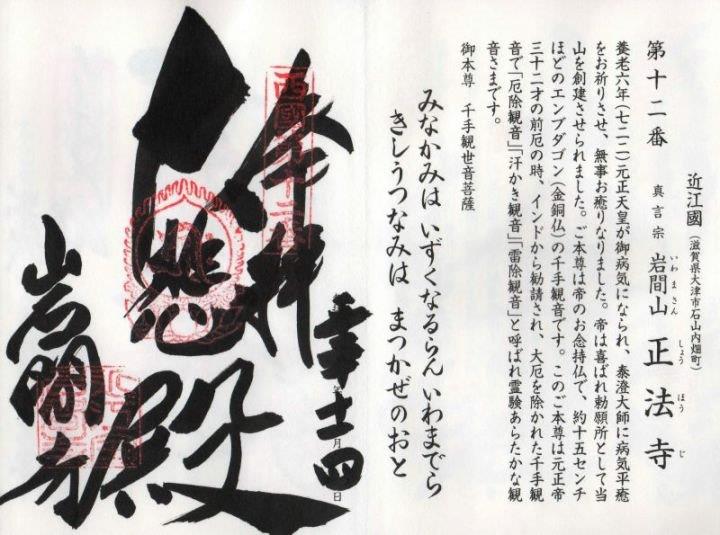 近江國（滋賀県大津市石山内畑町）
第十二番　真言宗　岩間山　正法寺
いわまさん　しょうほうじ
養老六年（七二二）元正天皇が御病気になられ、泰澄大師に病気平癒
をお祈りさせ、無事お癒りなりました。帝は喜ばれ勅願所として当
山を創建させられました。ご本尊は帝のお念持仏で、約十五センチ
ほどのエンブダゴン（金銅仏）の千手観音です。このご本尊は元正帝
三十二才の前厄の時、インドから勧請され、大厄を除かれた千手観
音で「厄除観音」「汗かき観音」「雷除観音」と呼ばれ霊験あらたかな観
音さまです。
御本尊　千手観世音菩薩
みなかみは　いずくなるらん　いわまでら
きしうつなみは　まつかぜのおと
年十一月四日
奉拝
西國第十二番
大悲殿
岩間寺